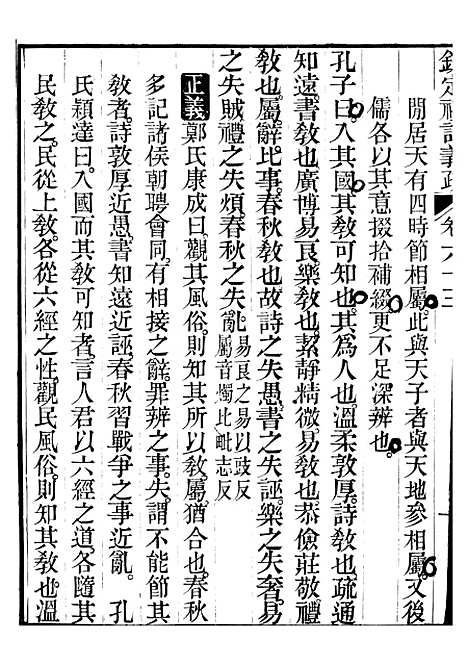 欽定禮記義疏 卷六十三
閒居天有四時節相屬此與天子者與天地參相屬文後
儒各以其意掇拾補綴更不足深辨也
孔子曰入其國其敎可知也其爲人也溫柔敦厚詩敎也疏通
知遠書敎也廣博易良樂敎也絜靜精微易敎也恭儉莊敬禮
敎也屬辭比事春秋敎也故詩之失愚書之失誣樂之失奢易
之失賊禮之失煩春秋之失亂
易良之易以豉反
屬音燭比毗志反
正義 鄭氏康成曰觀其風俗則知其所以敎屬猶合也春秋
多記諸侯朝聘會同有相接之辭罪辨之事失謂不能節其
敎者詩敦厚近愚書知遠近誣春秋習戰爭之事近亂 孔
氏穎達曰入國而其敎可知者言人君以六經之道各隨其
民敎之民從上敎各從六經之性觀民風俗則知其敎也溫